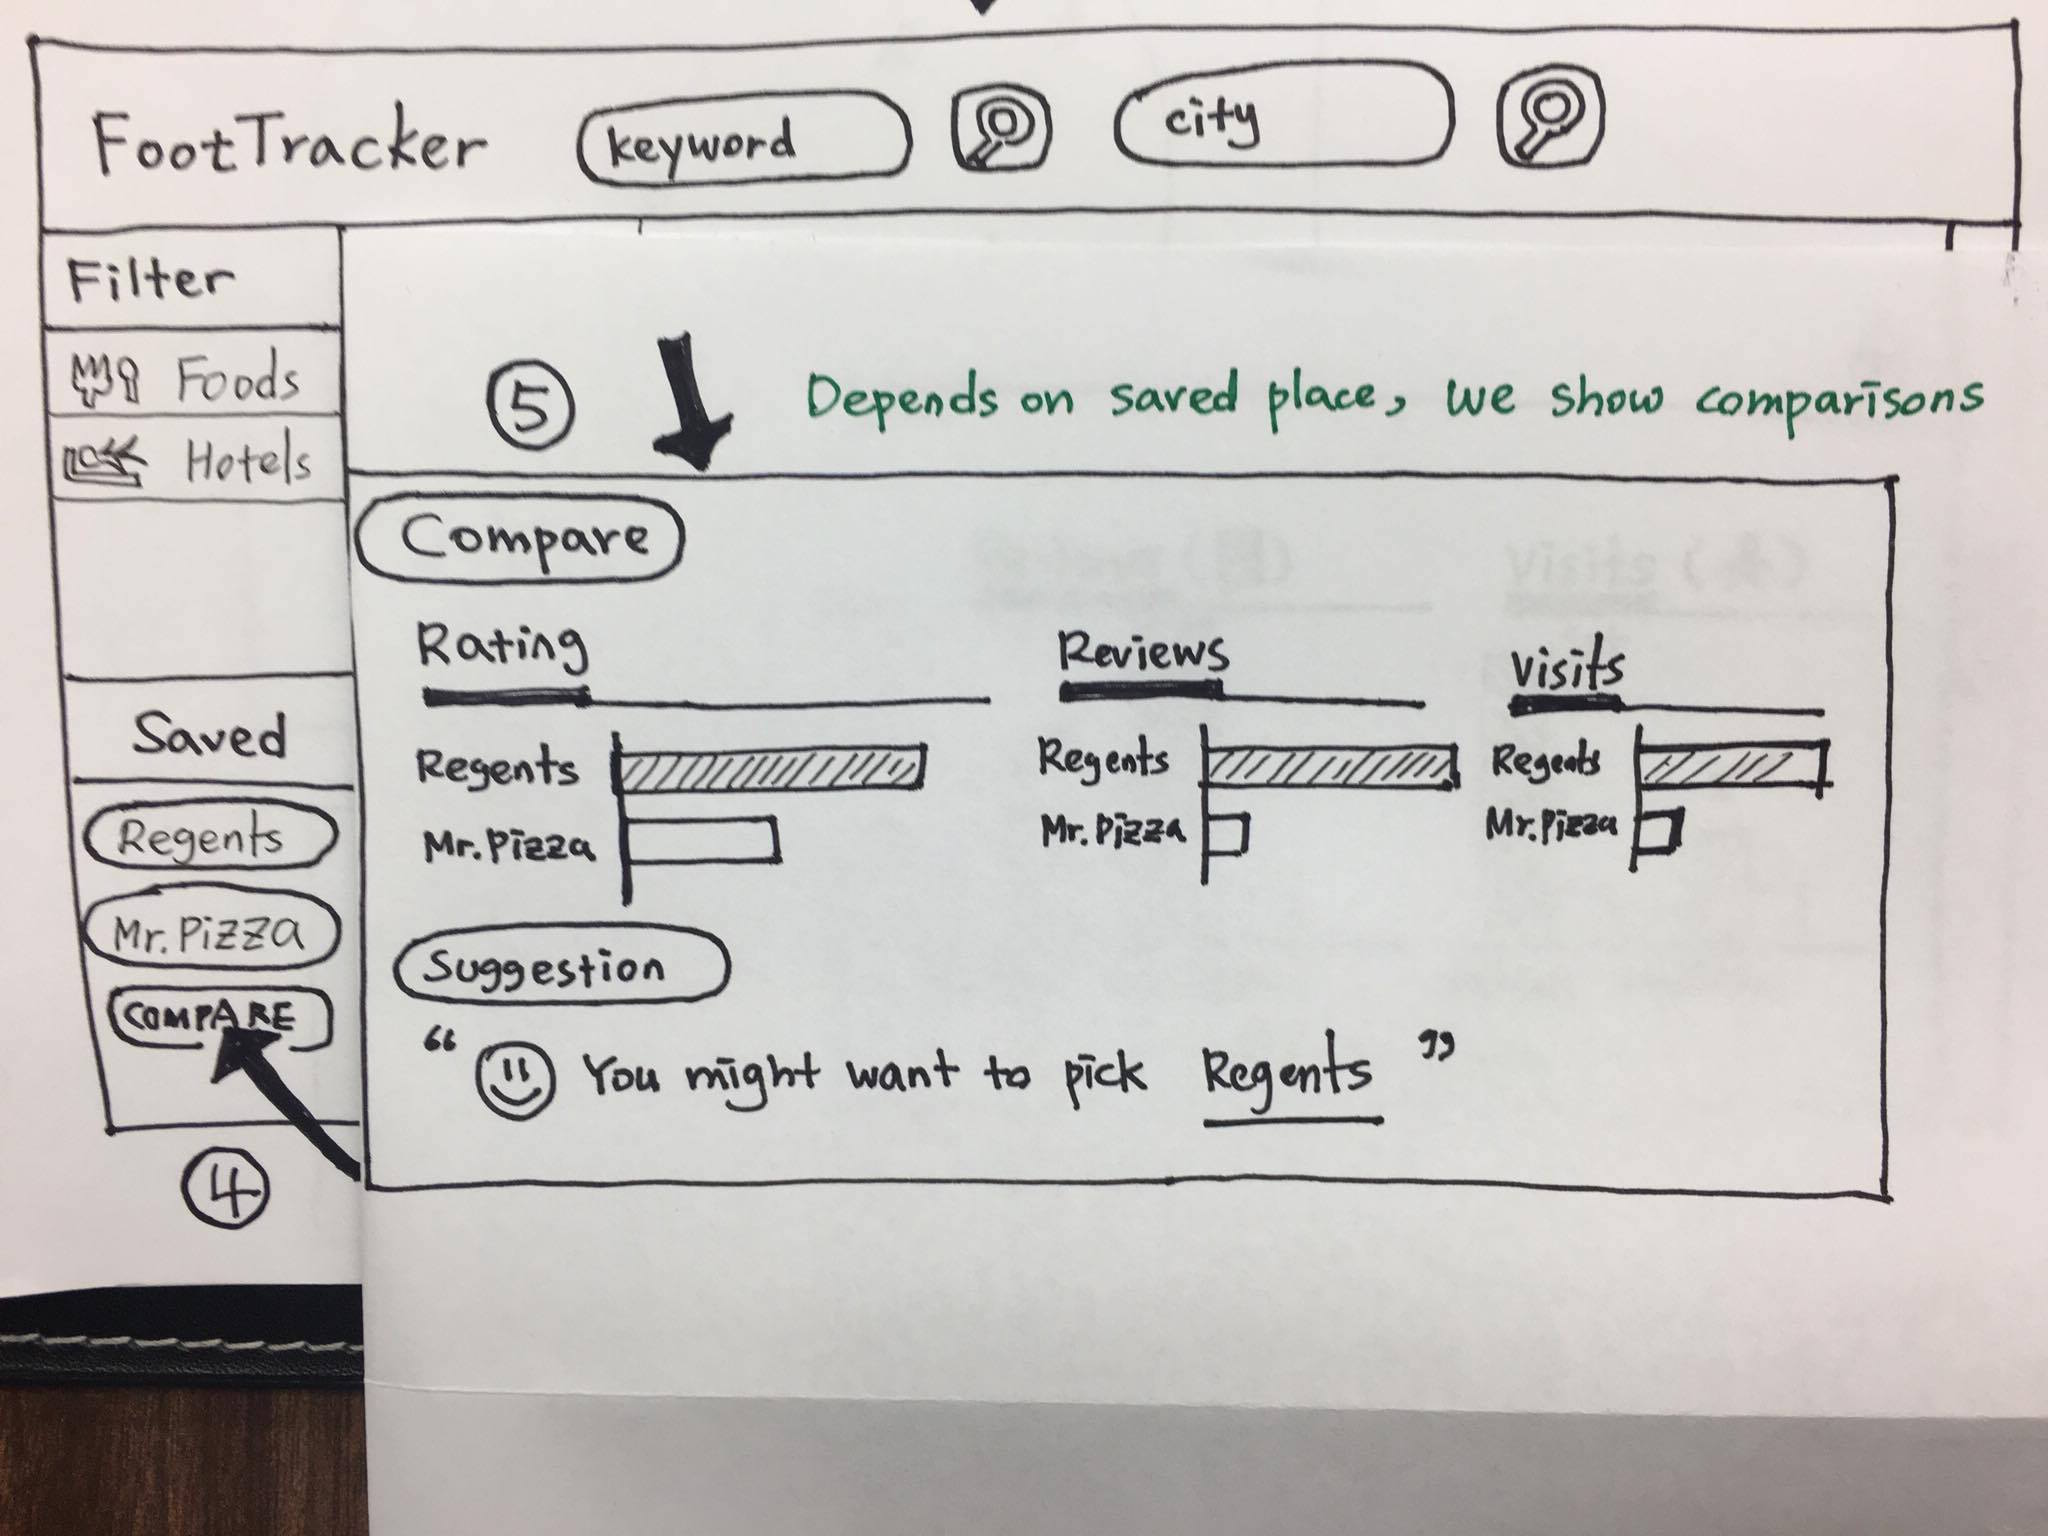 FootTracker keyword city
Filter
Foods
Hotels
Saved
Regents
Mr. Pizza
COMPARE
4
5 Depends on saved place, we show comparisons
Compare
Rating
Regents
Mr. Pizza
Reviews
Regents
Mr. Pizza
Visits
Regents
Mr. Pizza
Suggestion
“ You might want to pick Regents ”